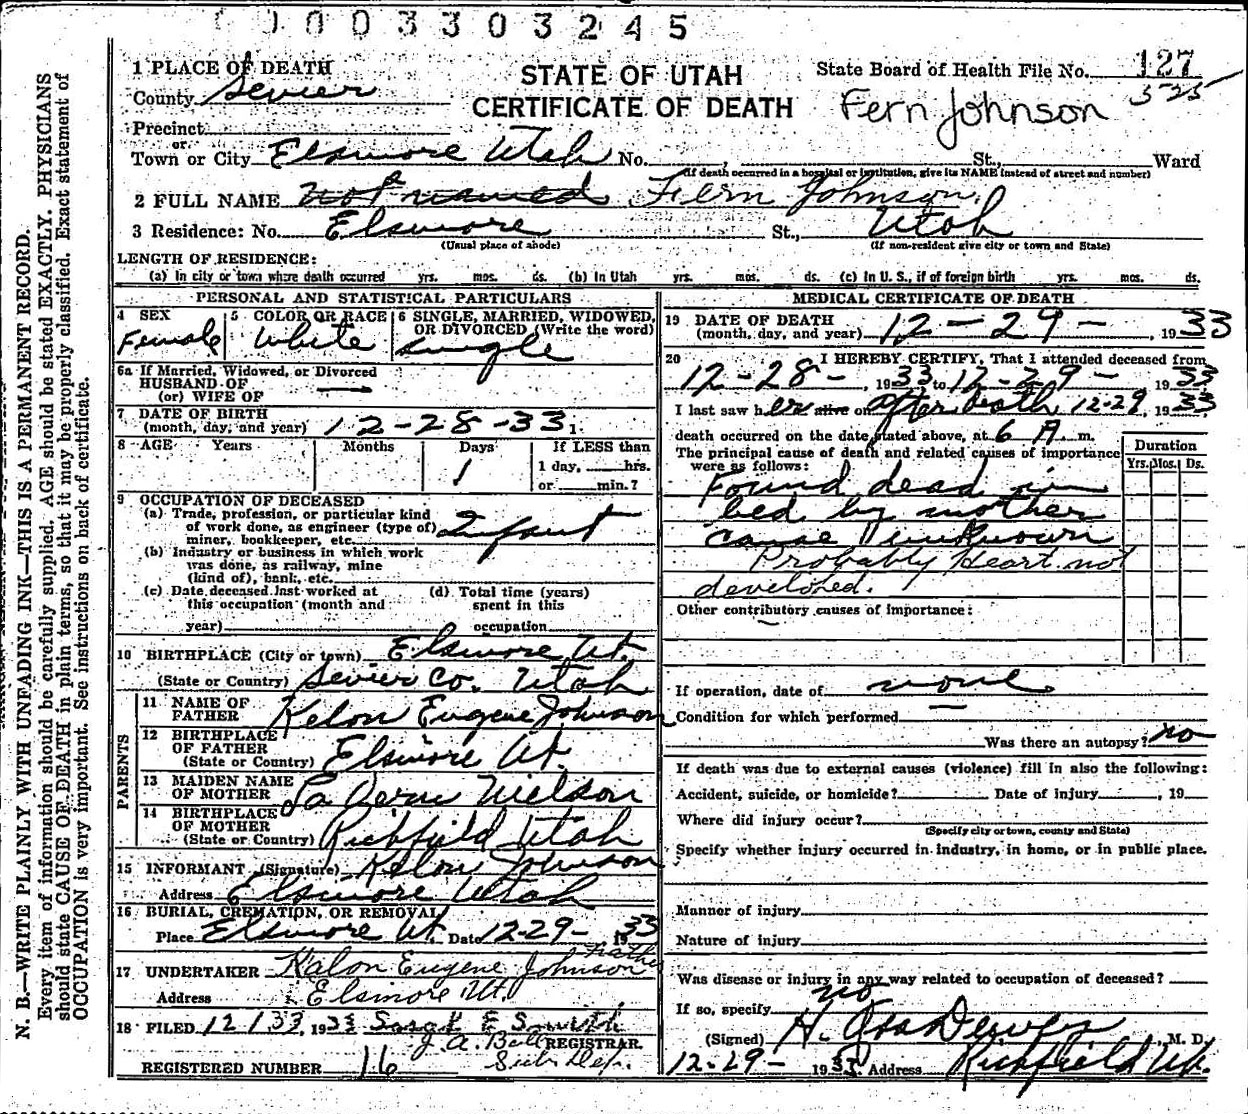 0003303245
1 PLACE OF DEATH
STATE OF UTAH
CERTIFICATE OF DEATH
State Board of Health File No. 127
525
Fern Johnson
County Sevier
Precinct
or
Town or City Elsinore Utah No. , St., Ward
(If death occurred in a hospital or institution, give its NAME instead of street and number)
2 FULL NAME not named Fern Johnson
3 Residence: No. Elsinore St., Utah
(Usual place of abode) (If non-resident give city or town and State)
LENGTH OF RESIDENCE:
(a) In city or town where death occurred yrs. mos. ds. (b) In Utah yrs. mos. ds. (c) In U. S., if of foreign birth yrs. mos. ds.
PERSONAL AND STATISTICAL PARTICULARS
4 SEX Female
5 COLOR OR RACE White
6 SINGLE, MARRIED, WIDOWED, OR DIVORCED (Write the word) single
6a If Married, Widowed, or Divorced
HUSBAND OF
(or) WIFE OF —
7 DATE OF BIRTH
(month, day, and year) 12-28-33
8 AGE Years Months Days If LESS than
1 1 day, hrs.
or min.?
9 OCCUPATION OF DECEASED
(a) Trade, profession, or particular kind
of work done, as engineer (type of) Infant
miner, bookkeeper, etc.
(b) Industry or business in which work
was done, as railway, mine
(kind of), bank, etc.
(c) Date deceased last worked at
this occupation (month and
year)
(d) Total time (years)
spent in this
occupation
10 BIRTHPLACE (City or town) Elsinore Ut.
(State or Country) Sevier Co. Utah
PARENTS
11 NAME OF
FATHER Kelon Eugene Johnson
12 BIRTHPLACE
OF FATHER
(State or Country) Elsinore Ut.
13 MAIDEN NAME
OF MOTHER La Vern Nielson
14 BIRTHPLACE
OF MOTHER
(State or Country) Richfield Utah
15 INFORMANT (Signature) Kelon Johnson
Address Elsinore Utah
16 BURIAL, CREMATION, OR REMOVAL
Place Elsinore Ut. Date 12-29- 1933
Father
17 UNDERTAKER Kalon Eugene Johnson
Address Elsinore Ut.
18 FILED Sarah E Smith
J. A. Ball REGISTRAR.
Sub Dep.
REGISTERED NUMBER 16
MEDICAL CERTIFICATE OF DEATH
19 DATE OF DEATH
(month, day, and year) 12-29-, 1933
20 I HEREBY CERTIFY, That I attended deceased from
12-28-, 1933 to 12-29- 1933
I last saw her alive on after death 12-29, 1933
death occurred on the date stated above, at 6 A. m.
The principal cause of death and related causes of importance
were as follows:
Duration
Yrs. Mos. Ds.
Found dead in
bed by mother
cause unknown
Probably Heart not
developed.
Other contributory causes of importance:
If operation, date of none
Condition for which performed —
Was there an autopsy? no
If death was due to external causes (violence) fill in also the following:
Accident, suicide, or homicide? Date of injury , 19
Where did injury occur?
(Specify city or town, county and State)
Specify whether injury occurred in industry, in home, or in public place.
Manner of injury
Nature of injury
Was disease or injury in any way related to occupation of deceased?
no
If so, specify
(Signed) H. , M. D.
12-29- 1933 Address Richfield Ut.
N. B.—WRITE PLAINLY WITH UNFADING INK—THIS IS A PERMANENT RECORD.
Every item of information should be carefully supplied. AGE should be stated EXACTLY. PHYSICIANS
should state CAUSE OF DEATH in plain terms, so that it may be properly classified. Exact statement of
OCCUPATION is very important. See instructions on back of certificate.